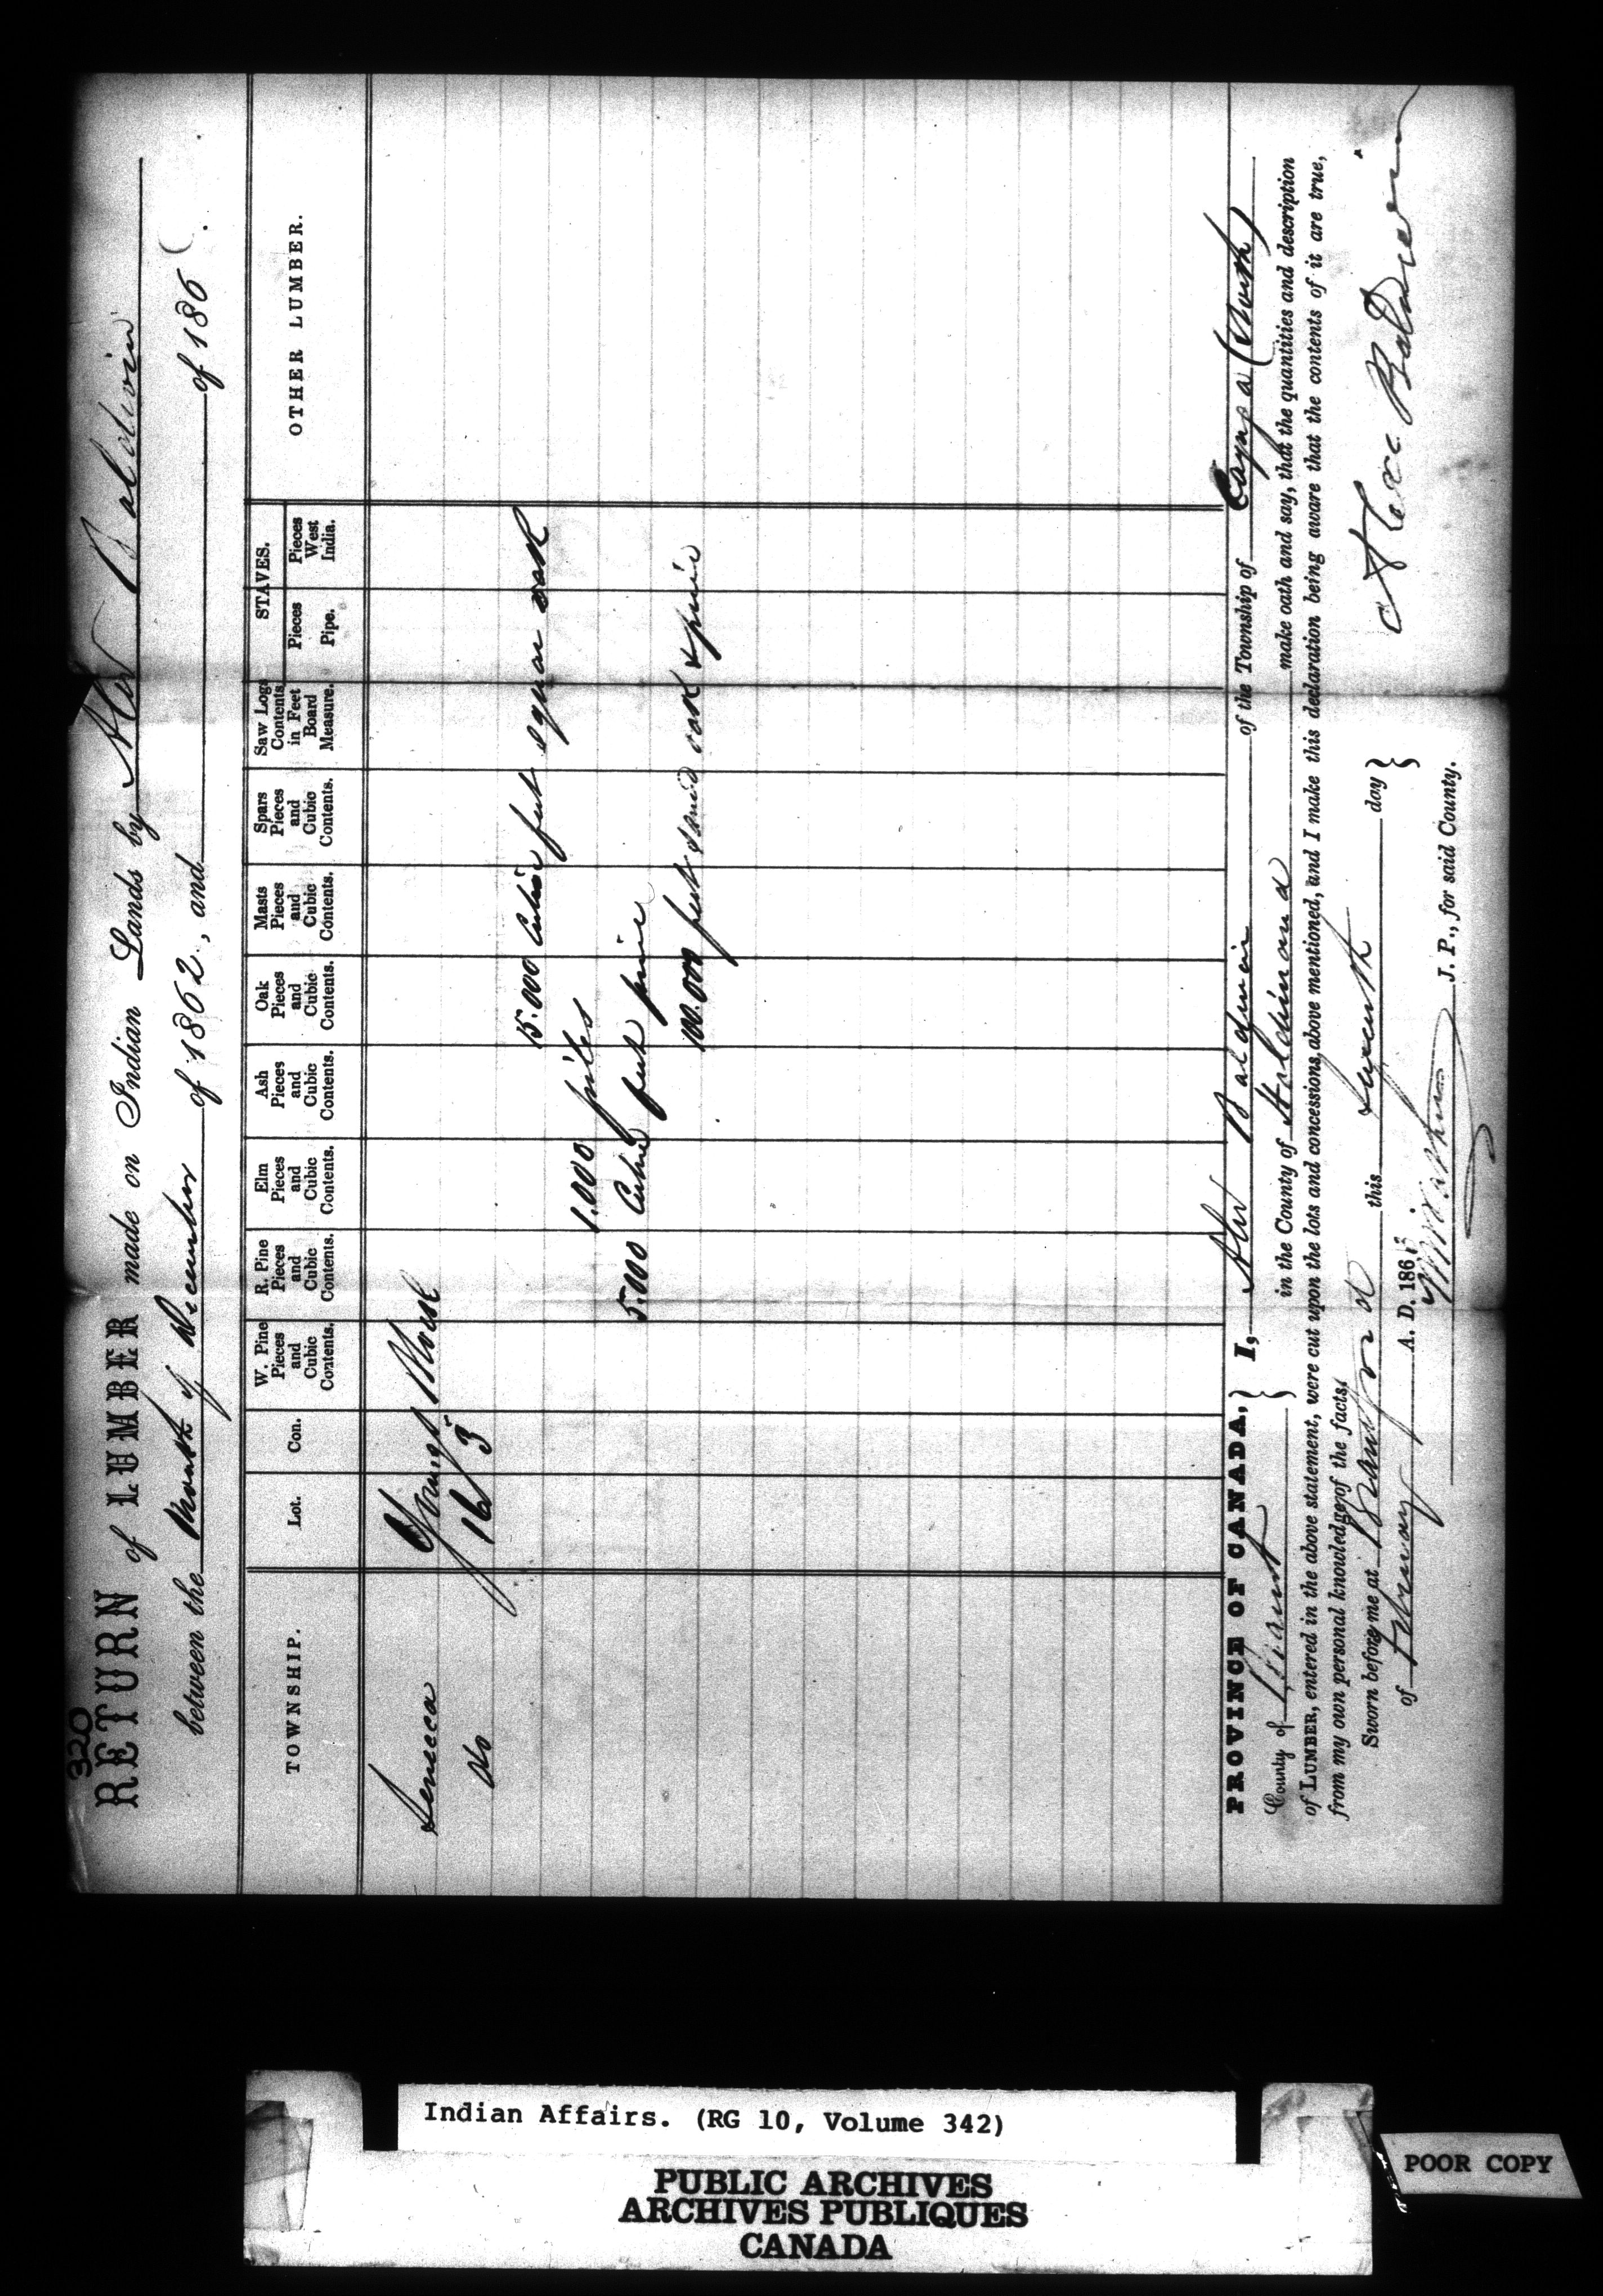 320
RETURN of LUMBER made on Indian Lands by Alex Baldwin
between the Month of December of 1862, and of 186 .
TOWNSHIP.
Lot.
Con.
W. Pine Pieces and Cubic Contents.
R. Pine Pieces and Cubic Contents.
Elm Pieces and Cubic Contents.
Ash Pieces and Cubic Contents.
Oak Pieces and Cubic Contents.
Masts Pieces and Cubic Contents.
Spars Pieces and Cubic Contents.
Saw Logs Contents in Feet Board Measure.
STAVES.
Pieces Pipe.
Pieces West India.
OTHER LUMBER.
Seneca Youngs
Do 16 3
15.000 Cubic feet square oak
1.000 piles
5.000 Cubic feet pine
100.000 feet oak & pine
PROVINCE OF CANADA, } I, Alex Baldwin of the Township of Cayuga (North)
County of Brant } in the County of Haldimand make oath and say, that the quantities and description
of LUMBER, entered in the above statement, were cut upon the lots and concessions above mentioned, and I make this declaration being aware that the contents of it are true,
from my own personal knowledge of the facts.
Sworn before me at Brantford this day }
of February A. D. 1863 }
Alex Baldwin
J. P., for said County.
Indian Affairs. (RG 10, Volume 342)
PUBLIC ARCHIVES
ARCHIVES PUBLIQUES
CANADA
POOR COPY